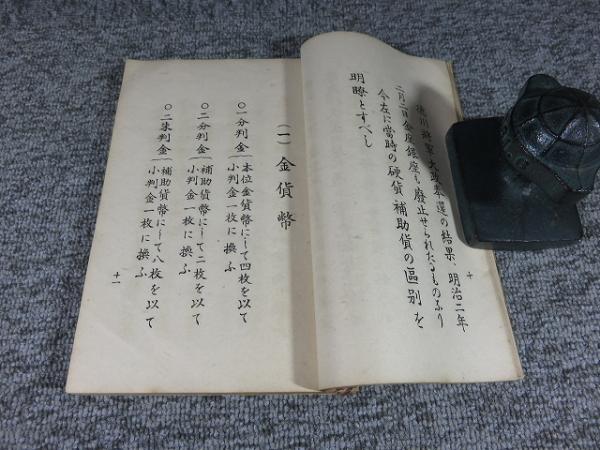 徳川将軍大政奉還の結果、明治二年
二月二日金座銀座も廃止せられたるものなり
今左に當時の硬貨、補助貨の區別を
明瞭とすべし
十
(一)金貨幣
○一分判金 本位金貨幣にして四枚を以て
小判金一枚に換ふ
○二分判金 補助貨幣にして二枚を以て
小判金一枚に換ふ
○二朱判金 補助貨幣にして八枚を以て
小判金一枚に換ふ
十一